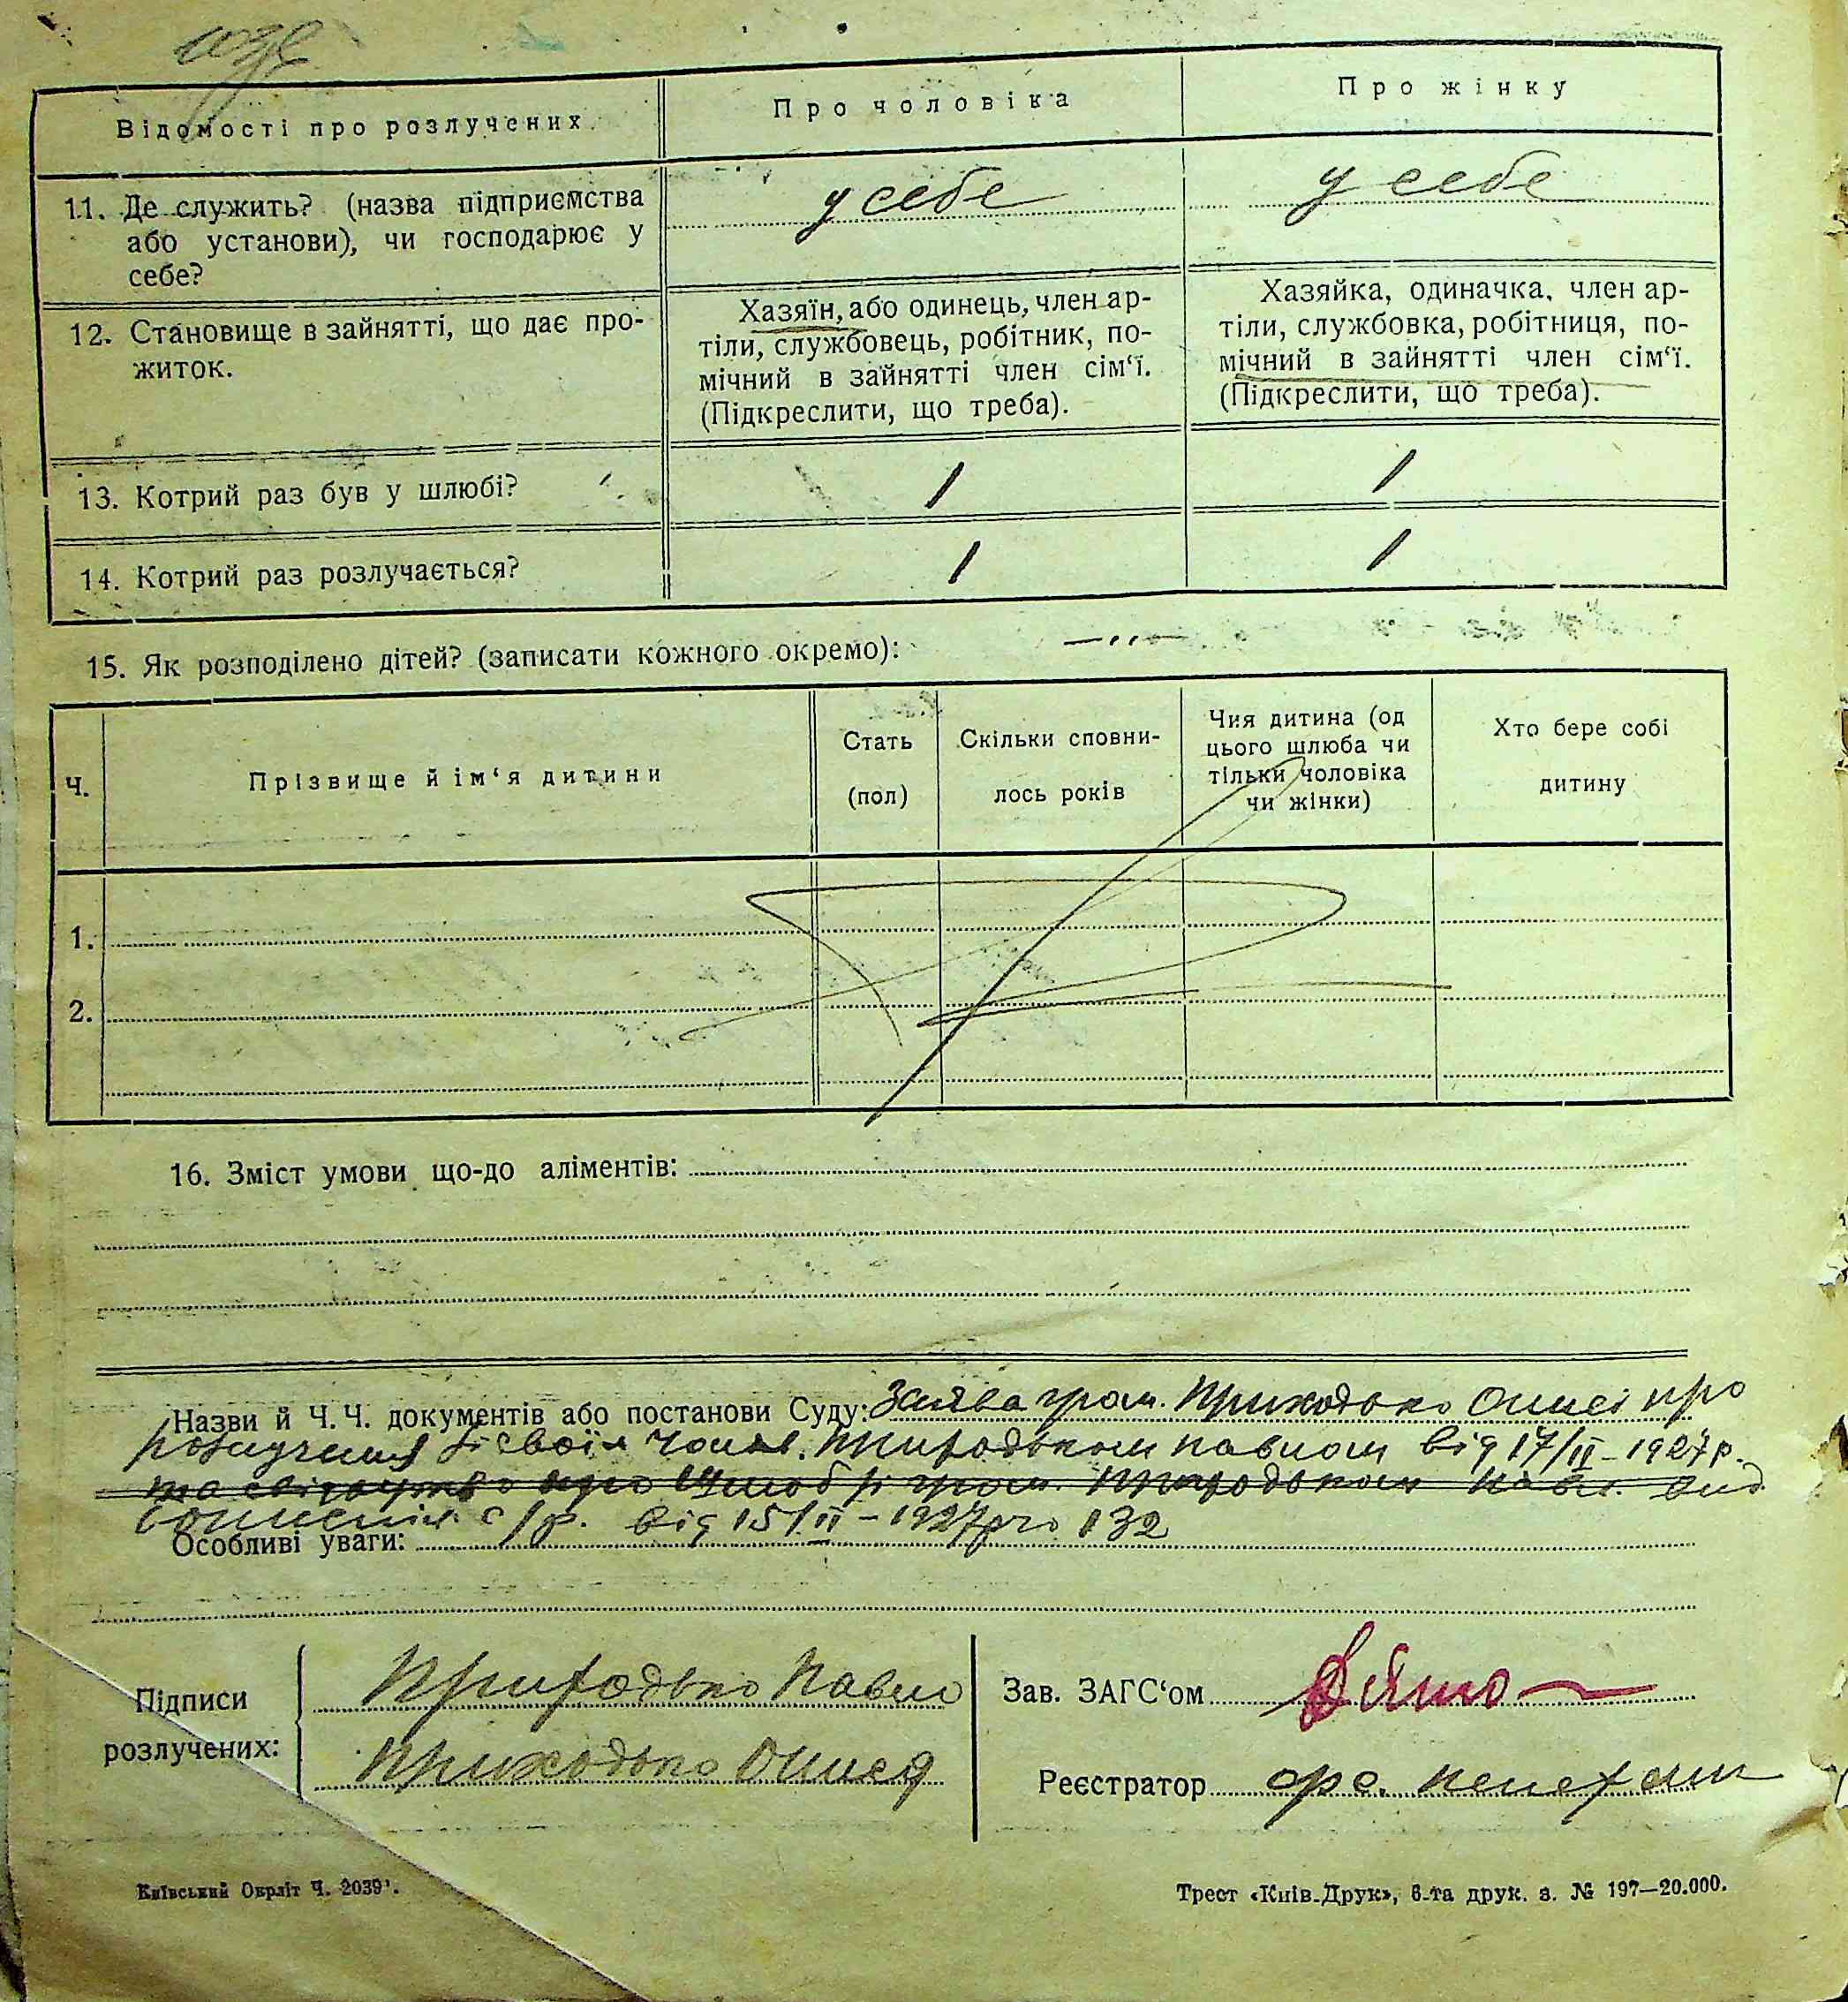 Відомості про розлучених
Про чоловіка
Про жінку
11. Де служить? (назва підприємства
або установи), чи господарює у
себе?
у себе
у себе
12. Становище в зайнятті, що дає про-
житок.
Хазяїн, або одинець, член ар-
тіли, службовець, робітник, по-
мічний в зайнятті член сім‘ї.
(Підкреслити, що треба).
Хазяйка, одиначка, член ар-
тіли, службовка, робітниця, по-
мічний в зайнятті член сім‘ї.
(Підкреслити, що треба).
13. Котрий раз був у шлюбі?
1
1
14. Котрий раз розлучається?
1
1
15. Як розподілено дітей? (записати кожного окремо):
Ч.
Прізвище й ім‘я дитини
Стать
(пол)
Скільки сповни-
лось років
Чия дитина (од
цього шлюба чи
тільки чоловіка
чи жінки)
Хто бере собі
дитину
1.
2.
16. Зміст умови що-до аліментів:
Назви й Ч.Ч. документів або постанови Суду: Заява гром. Приходько Описі про
розлучення зі своїм чолов. Приходьком Павлом від 17/II-1927р.
та свідоцтво про шлюб з гром. Приходьком Павл.
с/р. від 15/II-1927р 132
Особливі уваги:
Підписи
розлучених:
Приходько Павло
Приходько Опися
Зав. ЗАГС‘ом
Реєстратор
Київський Окрліт Ч. 2039.
Трест «Київ-Друк», 6-та друк. з. № 197—20.000.